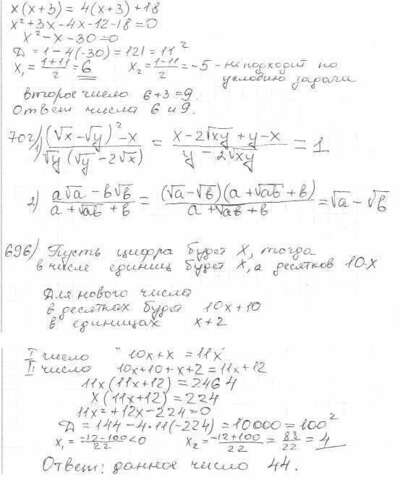 x(x+3) = 4(x+3)+18
x²+3x-4x-12-18=0
x²-x-30=0
Д=1-4(-30)=121=11²
x₁=(1+11)/2=6 x₂=(1-11)/2=-5 - не подходит по
условию задачи
второе число 6+3=9.
Ответ числа 6 и 9.
702) 1) ((√x-√y)²-x)/(√y(√y-2√x)) = (x-2√xy+y-x)/(y-2√xy) = 1
2) (a√a-b√b)/(a+√ab+b) = ((√a-√b)(a+√ab+b))/(a+√ab+b) = √a-√b
696) Пусть цифра будет x, тогда
в числе единиц будет x, а десятков 10·x
Для нового числа
в десятках будет 10x+10
в единицах x+2
I число 10x+x=11x
II число 10x+10+x+2=11x+12
11x(11x+12)=2464
x(11x+12)=224
11x²+12x-224=0
Д=144-4·11(-224)=10000=100²
x₁=(-12-100)/22<0 x₂=(-12+100)/22=83/22=4
Ответ: данное число 44.